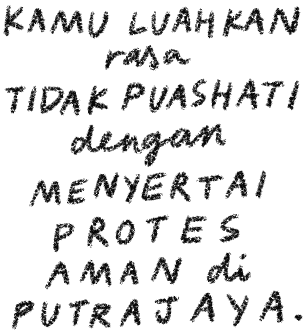 KAMU LUAHKAN
rasa
TIDAK PUASHATI
dengan
MENYERTAI
PROTES
AMAN di
PUTRAJAYA.